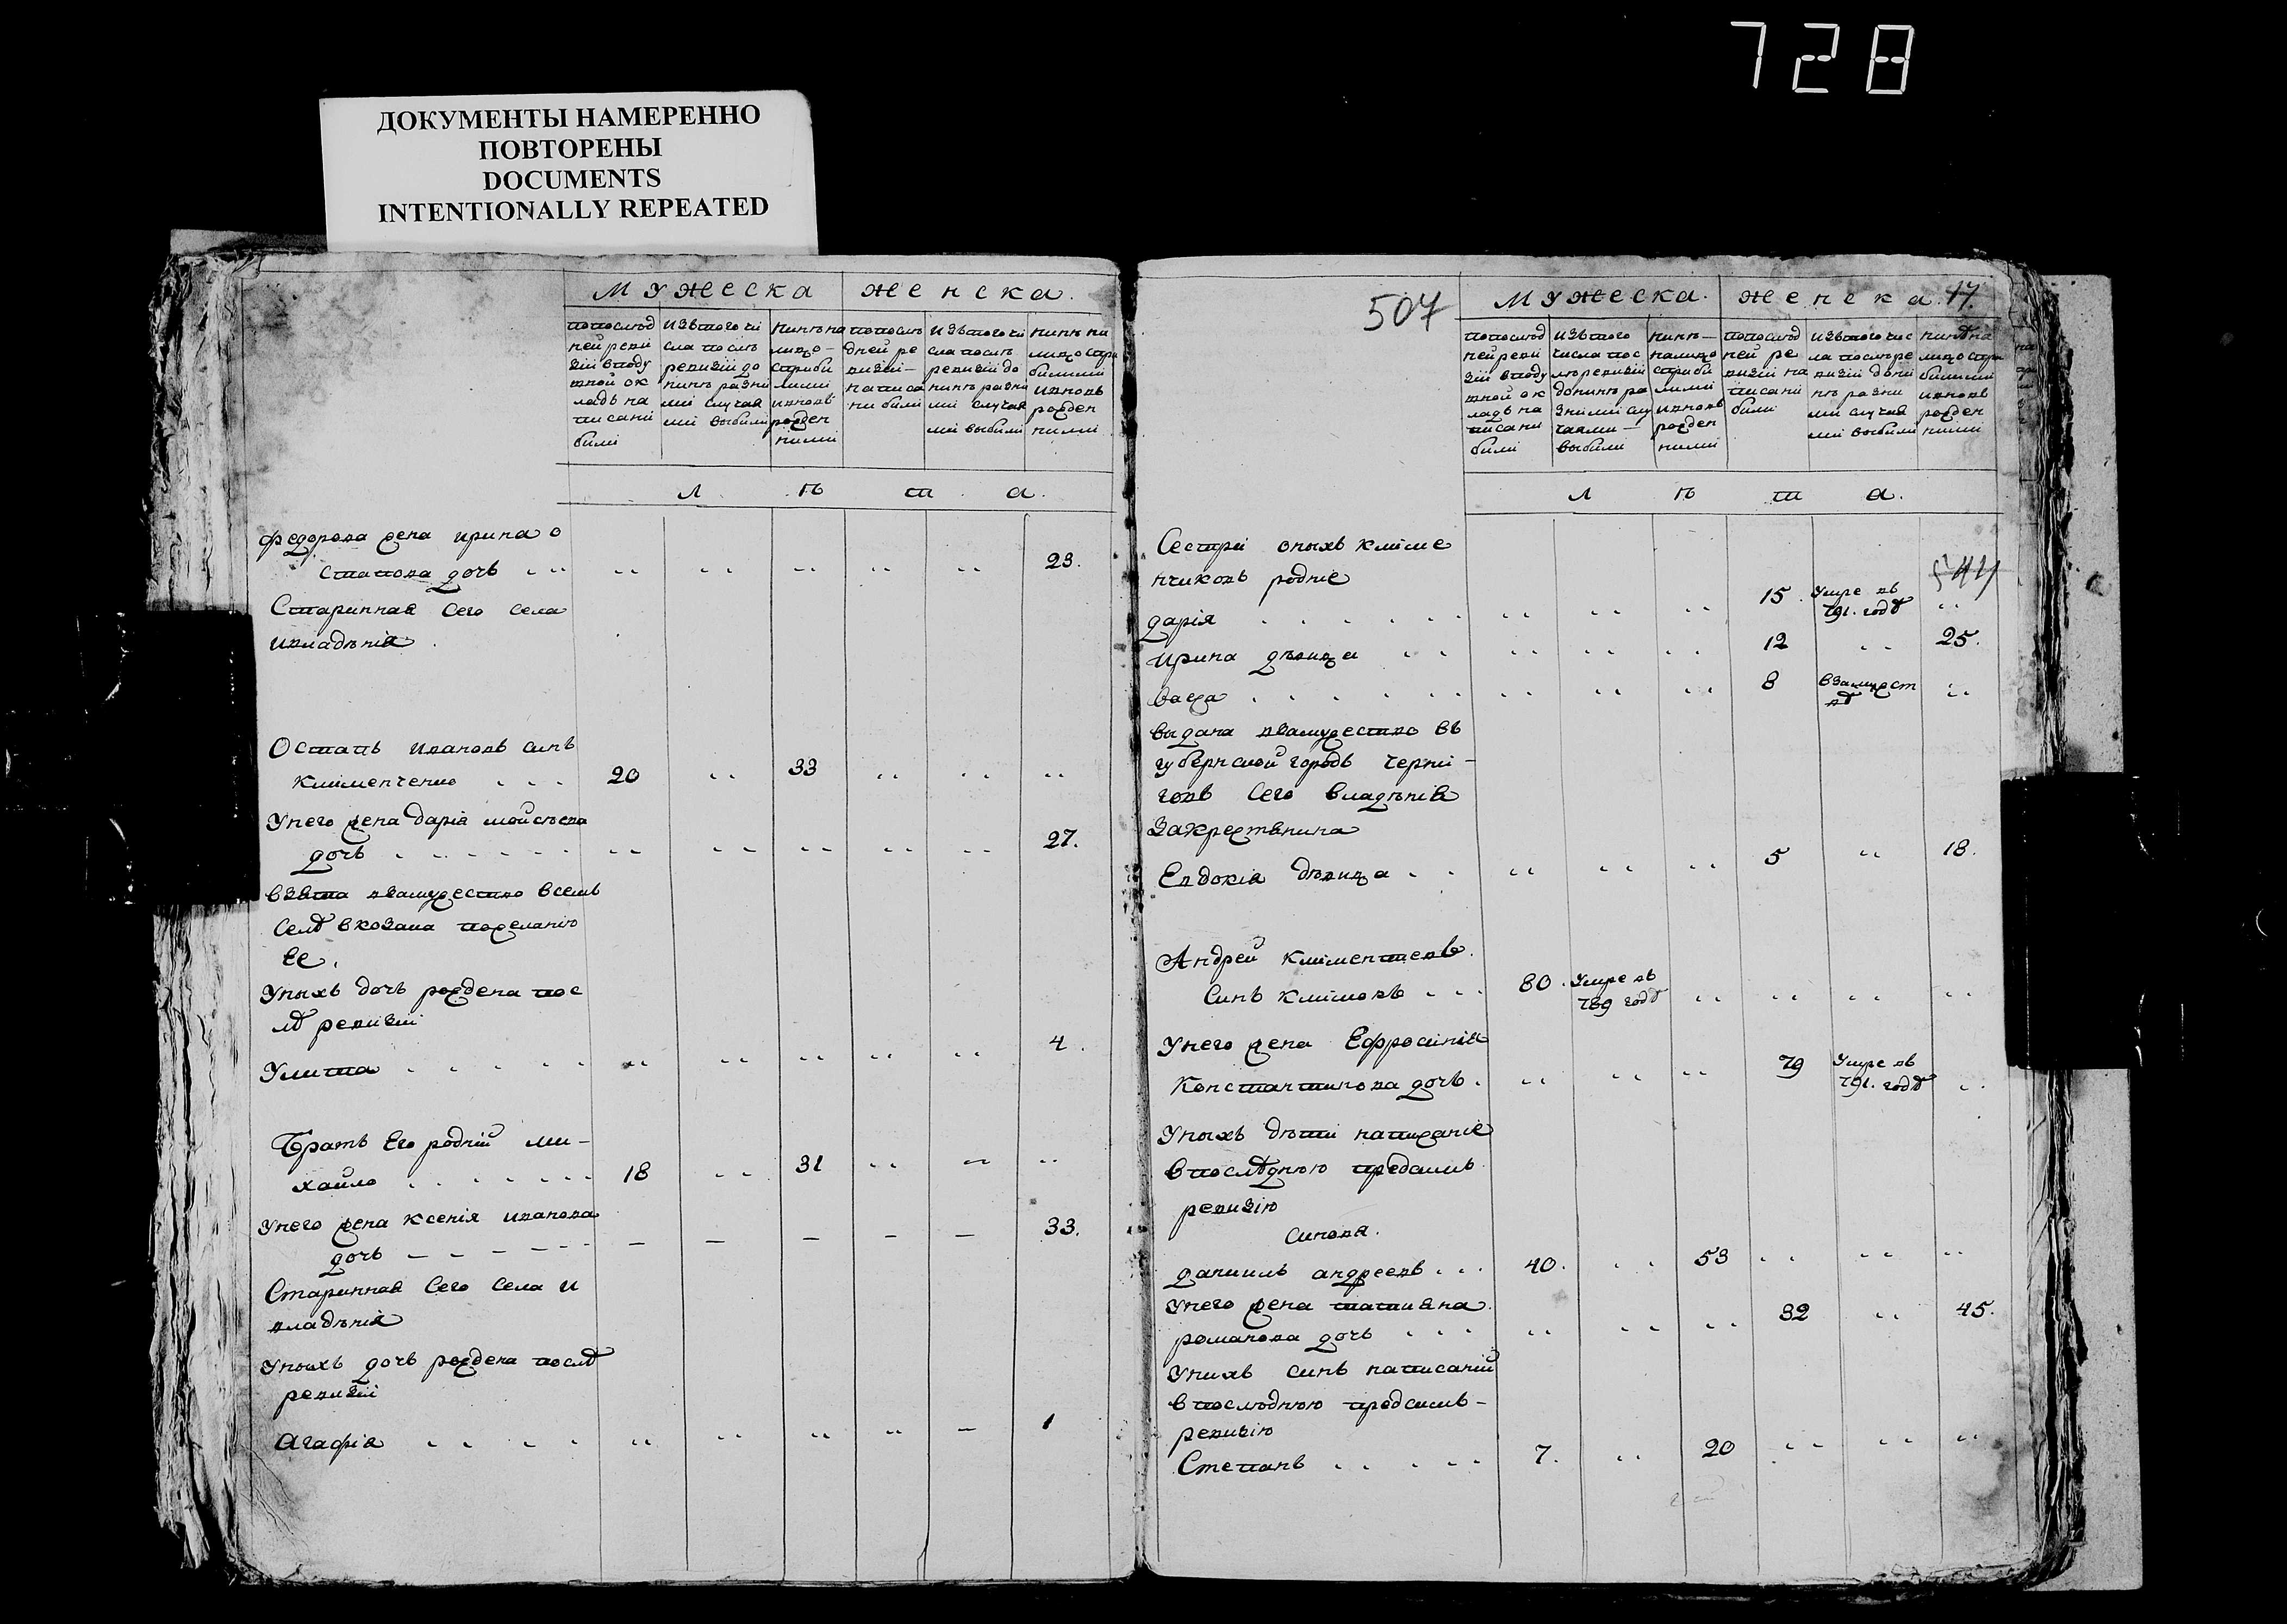 728
ДОКУМЕНТЫ НАМЕРЕННО
ПОВТОРЕНЫ
DOCUMENTS
INTENTIONALLY REPEATED
Мужеска Женска.
попослѣд
ней реви
зіи вподу
шной ок
ладъ на
писани
били
Изътого чи
сла послѣ
ревизіи до
нинѣ разни
ми случая
ми вибили
нинѣ на
лицо
сприби
лими
ивновъ
рожден
ними
попослѣ
дней ре
визіи
написа
ни били
Изътого чи
сла послѣ
ревизіи до
нинѣ разни
ми случая
ми вибили
нинѣ на
лицо спри
билими
ивновъ
рожден
ними
л ѣ т а.
Федорова жена ирина о
стапова дочь 23.
Старинная Сего Села
ивладѣнія
Остапъ Ивановъ синъ
Клименченко 20 33
Унего жена дарія мойсѣева
дочь 27.
взята взамужество всемъ
Селѣ вкозака пожеланію
Ее.
Уныхъ дочь рождена пос
лѣ ревизіи
Улита 4.
Братъ Его родній ми-
хайло 18 31
Унего жена Ксенія иванова
дочь 33.
Старинная Сего Села и
владѣнія
Уныхъ дочь рождена послѣ
ревизіи
Агафія 1
507
Мужеска. Женска. 17.
попослѣд
ней реви
зіи вподу
шной ок
ладъ на
писани
били
Изътого
числа пос
лѣ ревизіи
донинѣ ра
зними слу
чаями
вибили
нинѣ
налицо
сприби
лими
ивновъ
рожден
ними
попослѣд
ней ре
визіи на
писани
били
Изътого чис
ла послѣ ре
визіи дони
нѣ разни
ми случая
ми вибили
нинѣ на
лицо спри
билими
ивновъ
рожден
ними
л ѣ т а.
Сестри оныхъ Климе
нчиковъ родніе
дарія 15. Умре въ
791. годѣ
Ирина дѣвица 12 25.
Васса 8 взамужест
вѣ
Выдана взамужество въ
губернской городъ черни-
говъ Сего владѣнія
Закрестянина
Евдокія дѣвица 5 18.
Андрей Климентіевъ
Синъ Климовъ 80. Умре въ
789 годѣ
Унего жена Ефросинія
Константинова дочь. 79 Умре въ
791. годѣ
Уныхъ дѣти написаніе
впослѣднюю предсимъ
ревизію
Синовя.
даниилъ андреевъ 40. 53
Унего жена татияна
романова дочь 32 45.
Унихъ синъ написаній
впослѣднюю предсимъ-
ревизію
Степанъ 7. 20